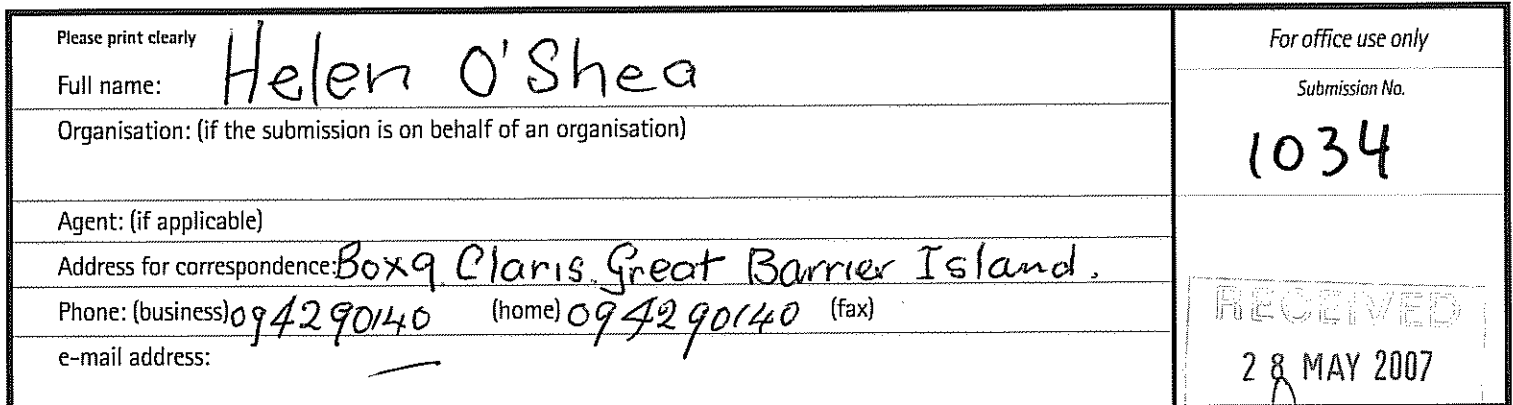 Please print clearly
Full name: Helen O'Shea
Organisation: (if the submission is on behalf of an organisation)
Agent: (if applicable)
Address for correspondence: Box 9 Claris. Great Barrier Island.
Phone: (business) 094290140 (home) 094290140 (fax)
e-mail address: —
For office use only
Submission No.
1034
RECEIVED
28 MAY 2007